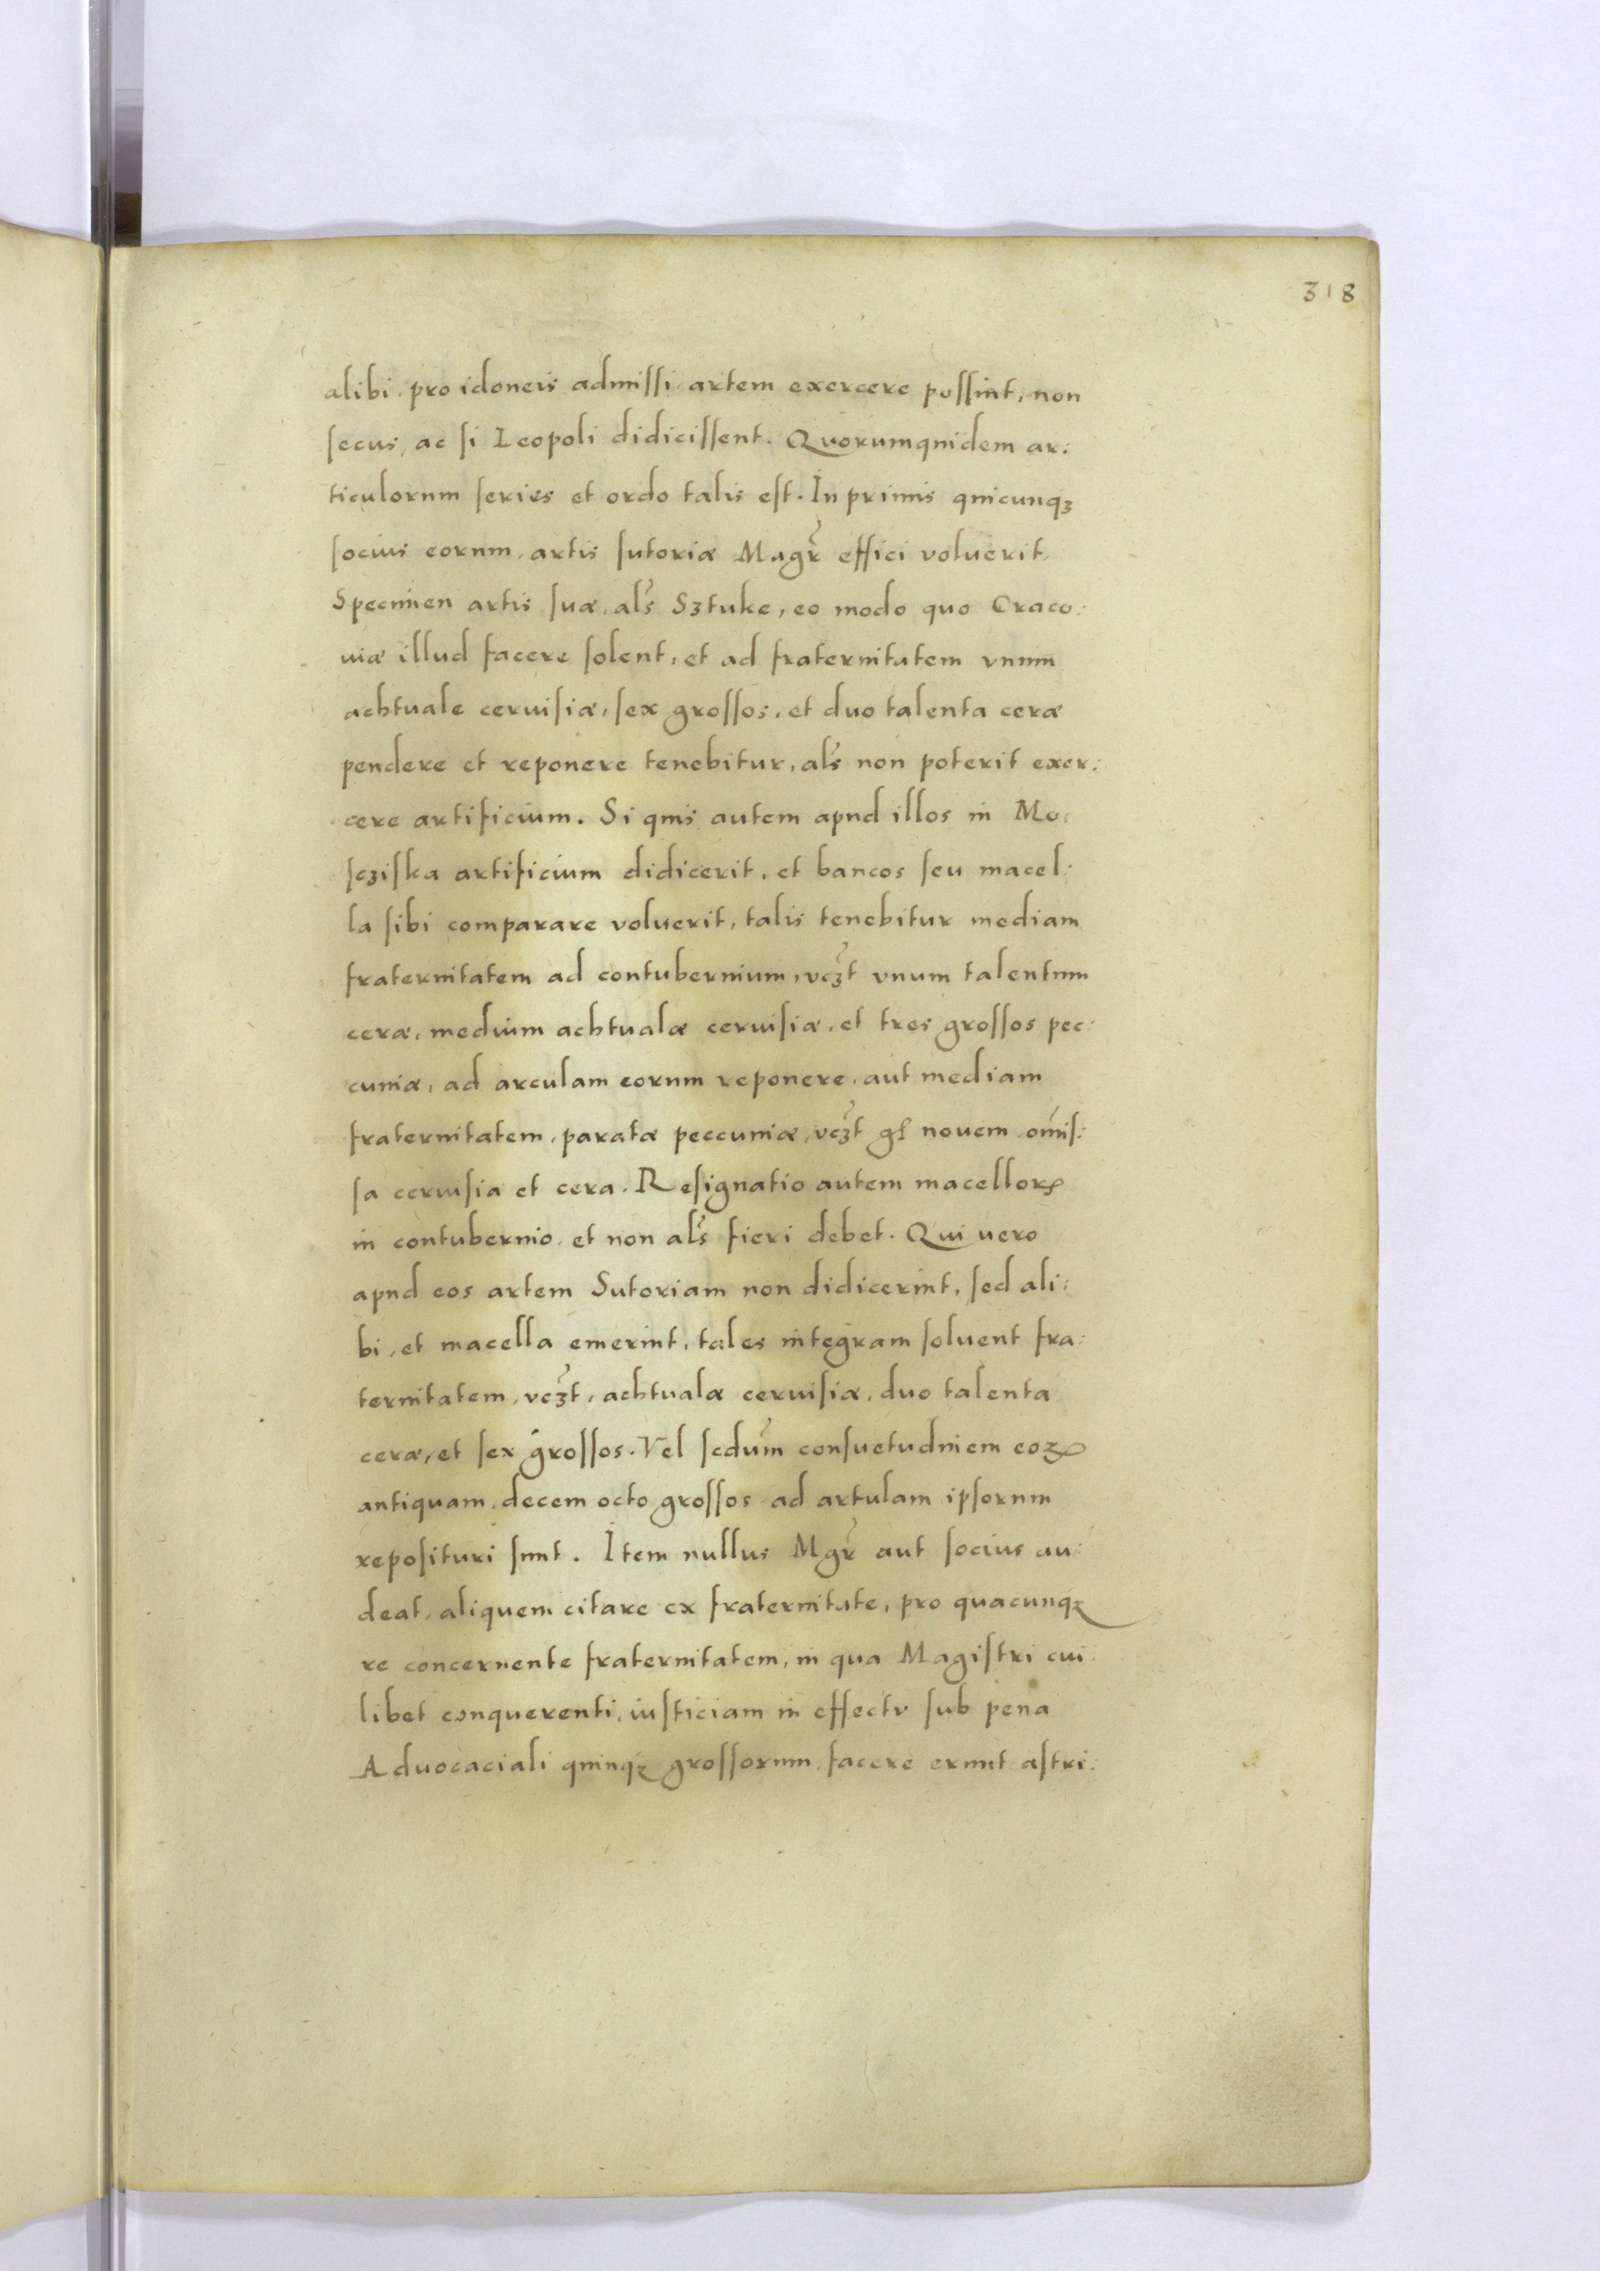 318
alibi, pro idoneis admissi, artem exercere possint, non
secus, ac si Leopoli didicissent. Quorumquidem ar:
ticulorum series et ordo talis est. In primis quicunqꝫ
socius eorum, artis sutoriæ Magr̃ effici voluerit,
Specimen artis suæ, al̃s Sztuke, eo modo quo Craco:
uiæ illud facere solent, et ad fraternitatem vnum
achtuale ceruisiæ, sex grossos, et duo talenta ceræ
pendere et reponere tenebitur, al̃s non poterit exer:
cere artificium. Si quis autem apud illos in Mo:
scziska artificium didicerit, et bancos seu macel:
la sibi comparare voluerit, talis tenebitur mediam
fraternitatem ad contubernium, vcꝫ̃t vnum talentum
ceræ, medium achtualæ ceruisiæ, et tres grossos pec:
cuniæ, ad arculam eorum reponere, aut mediam
fraternitatem, paratæ peccuniæ, vcꝫ̃t gł nouem, omis̃:
sa ceruisia et cera. Resignatio autem macelloꝝ
in contubernio, et non al̃s fieri debet. Qui uero
apud eos artem Sutoriam non didicerint, sed ali:
bi, et macella emerint, tales integram soluent fra:
ternitatem, vcꝫ̃t, achtualæ ceruisiæ, duo talenta
ceræ, et sex grossos. Vel sedum̃ consuetudinem eoꝝ
antiquam, decem octo grossos ad artulam ipsorum
reposituri sunt. Item nullus Mgr̃ aut socius au:
deat, aliquem citare ex fraternitate, pro quacunqꝫ
re concernente fraternitatem, in qua Magistri cui:
libet conquerenti, iusticiam in effectv sub pena
Aduocaciali quinqꝫ grossorum, facere erunt astri: